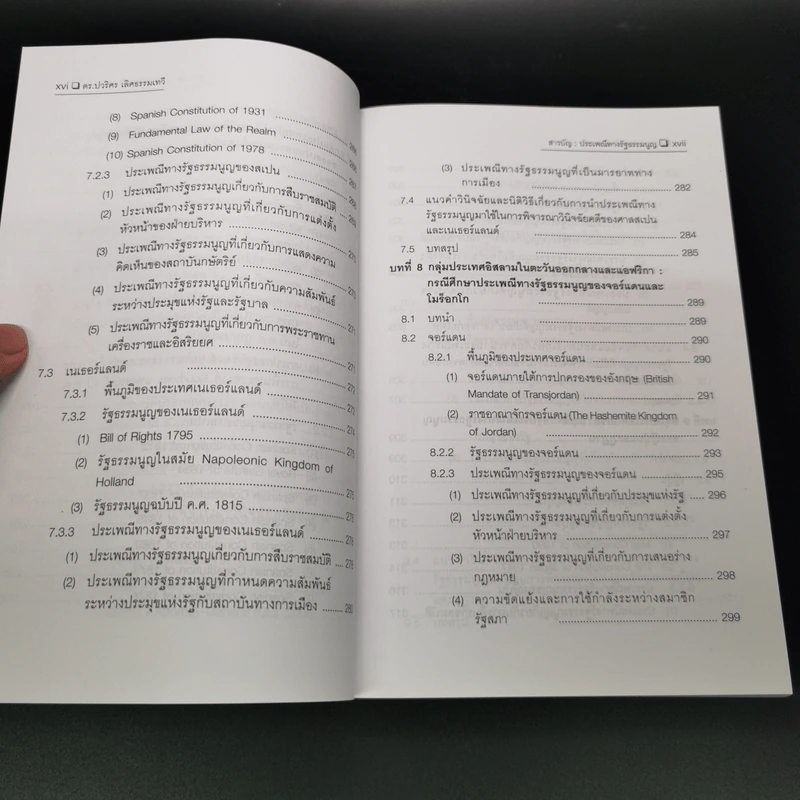 xvi ❑ ดร.ปวริศร เลิศธรรมเทวี
(8) Spanish Constitution of 1931
(9) Fundamental Law of the Realm
(10) Spanish Constitution of 1978
7.2.3 ประเพณีทางรัฐธรรมนูญของสเปน
(1) ประเพณีทางรัฐธรรมนูญเกี่ยวกับการสืบราชสมบัติ
(2) ประเพณีทางรัฐธรรมนูญที่เกี่ยวกับการแต่งตั้ง
หัวหน้าของฝ่ายบริหาร
(3) ประเพณีทางรัฐธรรมนูญที่เกี่ยวกับการแสดงความ
คิดเห็นของสถาบันกษัตริย์
(4) ประเพณีทางรัฐธรรมนูญที่เกี่ยวกับความสัมพันธ์
ระหว่างประมุขแห่งรัฐและรัฐบาล
(5) ประเพณีทางรัฐธรรมนูญที่เกี่ยวกับการพระราชทาน
เครื่องราชและอิสริยยศ
7.3 เนเธอร์แลนด์
7.3.1 พื้นภูมิของประเทศเนเธอร์แลนด์
7.3.2 รัฐธรรมนูญของเนเธอร์แลนด์
(1) Bill of Rights 1795
(2) รัฐธรรมนูญในสมัย Napoleonic Kingdom of
Holland
(3) รัฐธรรมนูญฉบับปี ค.ศ. 1815
7.3.3 ประเพณีทางรัฐธรรมนูญของเนเธอร์แลนด์
(1) ประเพณีทางรัฐธรรมนูญเกี่ยวกับการสืบราชสมบัติ
(2) ประเพณีทางรัฐธรรมนูญที่กำหนดความสัมพันธ์
ระหว่างประมุขแห่งรัฐกับสถาบันทางการเมือง 280
สารบัญ : ประเพณีทางรัฐธรรมนูญ ❑ xvii
(3) ประเพณีทางรัฐธรรมนูญที่เป็นมารยาททาง
การเมือง 282
7.4 แนวคำวินิจฉัยและนิติวิธีเกี่ยวกับการนำประเพณีทาง
รัฐธรรมนูญมาใช้ในการพิจารณาวินิจฉัยคดีของศาลสเปน
และเนเธอร์แลนด์ 284
7.5 บทสรุป 285
บทที่ 8 กลุ่มประเทศอิสลามในตะวันออกกลางและแอฟริกา :
กรณีศึกษาประเพณีทางรัฐธรรมนูญของจอร์แดนและ
โมร็อกโก 289
8.1 บทนำ 289
8.2 จอร์แดน 290
8.2.1 พื้นภูมิของประเทศจอร์แดน 290
(1) จอร์แดนภายใต้การปกครองของอังกฤษ (British
Mandate of Transjordan) 291
(2) ราชอาณาจักรจอร์แดน (The Hashemite Kingdom
of Jordan) 292
8.2.2 รัฐธรรมนูญของจอร์แดน 293
8.2.3 ประเพณีทางรัฐธรรมนูญของจอร์แดน 295
(1) ประเพณีทางรัฐธรรมนูญที่เกี่ยวกับประมุขแห่งรัฐ 296
(2) ประเพณีทางรัฐธรรมนูญที่เกี่ยวกับการแต่งตั้ง
หัวหน้าฝ่ายบริหาร 297
(3) ประเพณีทางรัฐธรรมนูญที่เกี่ยวกับการเสนอร่าง
กฎหมาย 298
(4) ความขัดแย้งและการใช้กำลังระหว่างสมาชิก
รัฐสภา 299